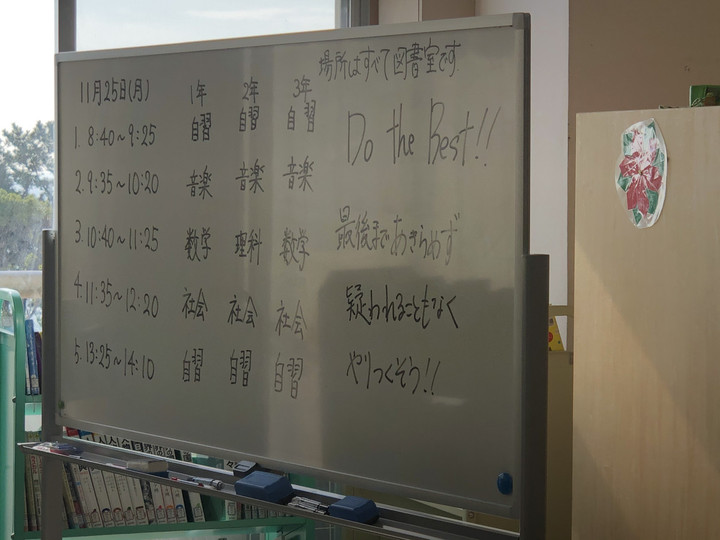 場所はすべて図書室です
11月25日(月) 1年 2年 3年
1. 8:40〜9:25 自習 自習 自習
2. 9:35〜10:20 音楽 音楽 音楽
3. 10:40〜11:25 数学 理科 数学
4. 11:35〜12:20 社会 社会 社会
5. 13:25〜14:10 自習 自習 自習
Do the Best!!
最後まであきらめず
疑われることもなく
やりつくそう!!